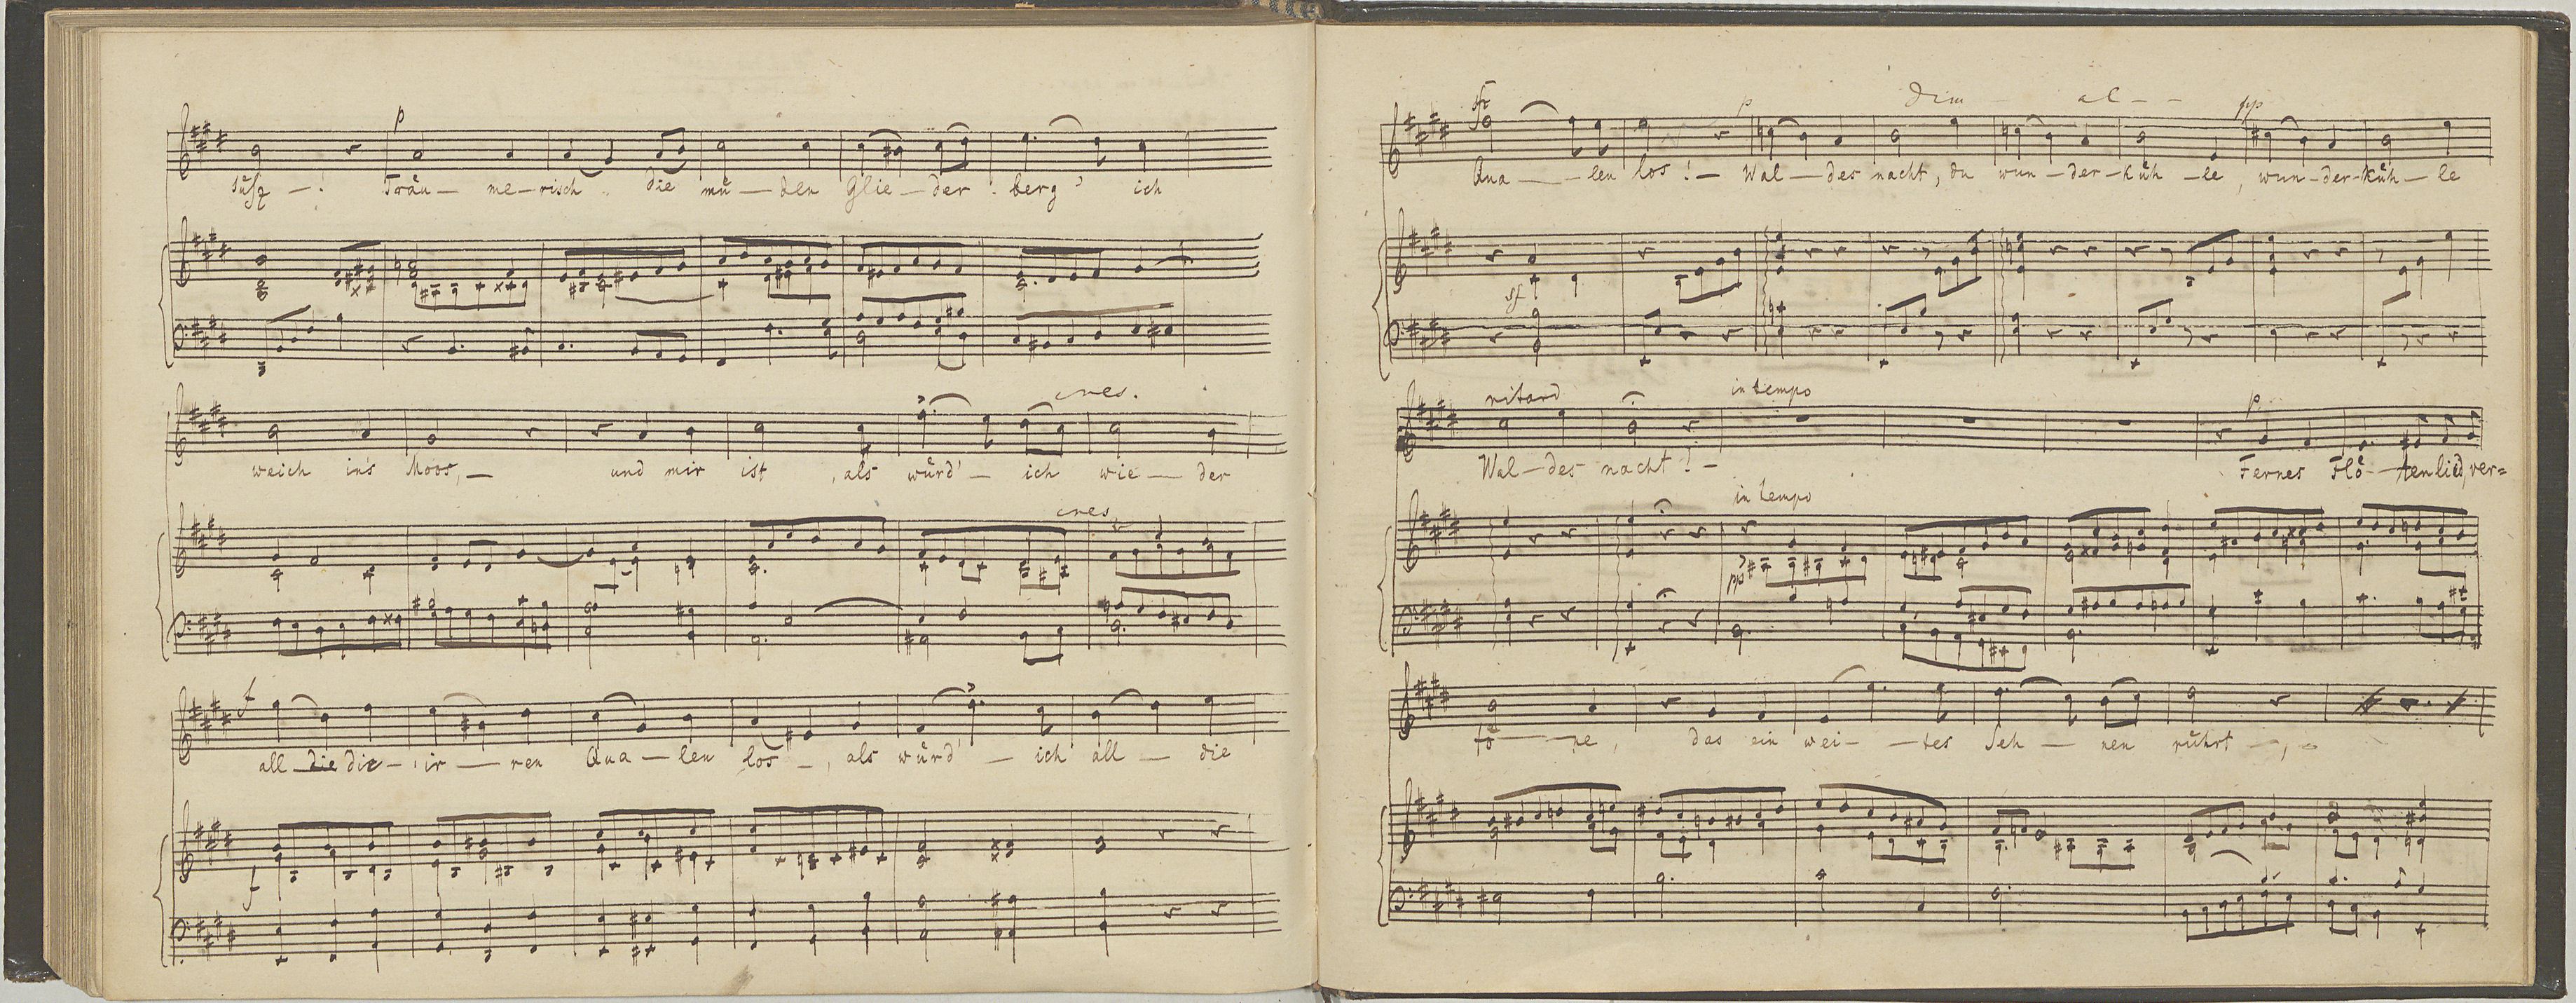 p
süß —! Träu — me — risch die mü — den Glie — der berg' ich
cres.
weich in's Moos, — und mir ist, als würd' — ich wie — der
cres
f
all — die die — ir — ren Qua — len los —, als würd' — ich all — die
f
dim al — —
sfz p pp
Qua — len los! — Wal — des nacht, du wun — der — küh — le, wun — der — küh — le
sf
ritard in tempo p
Wal — des nacht! — Fernes Flö — tenlied, ver=
in tempo
pp
tö — ne, das ein wei — tes Seh — nen rührt —,